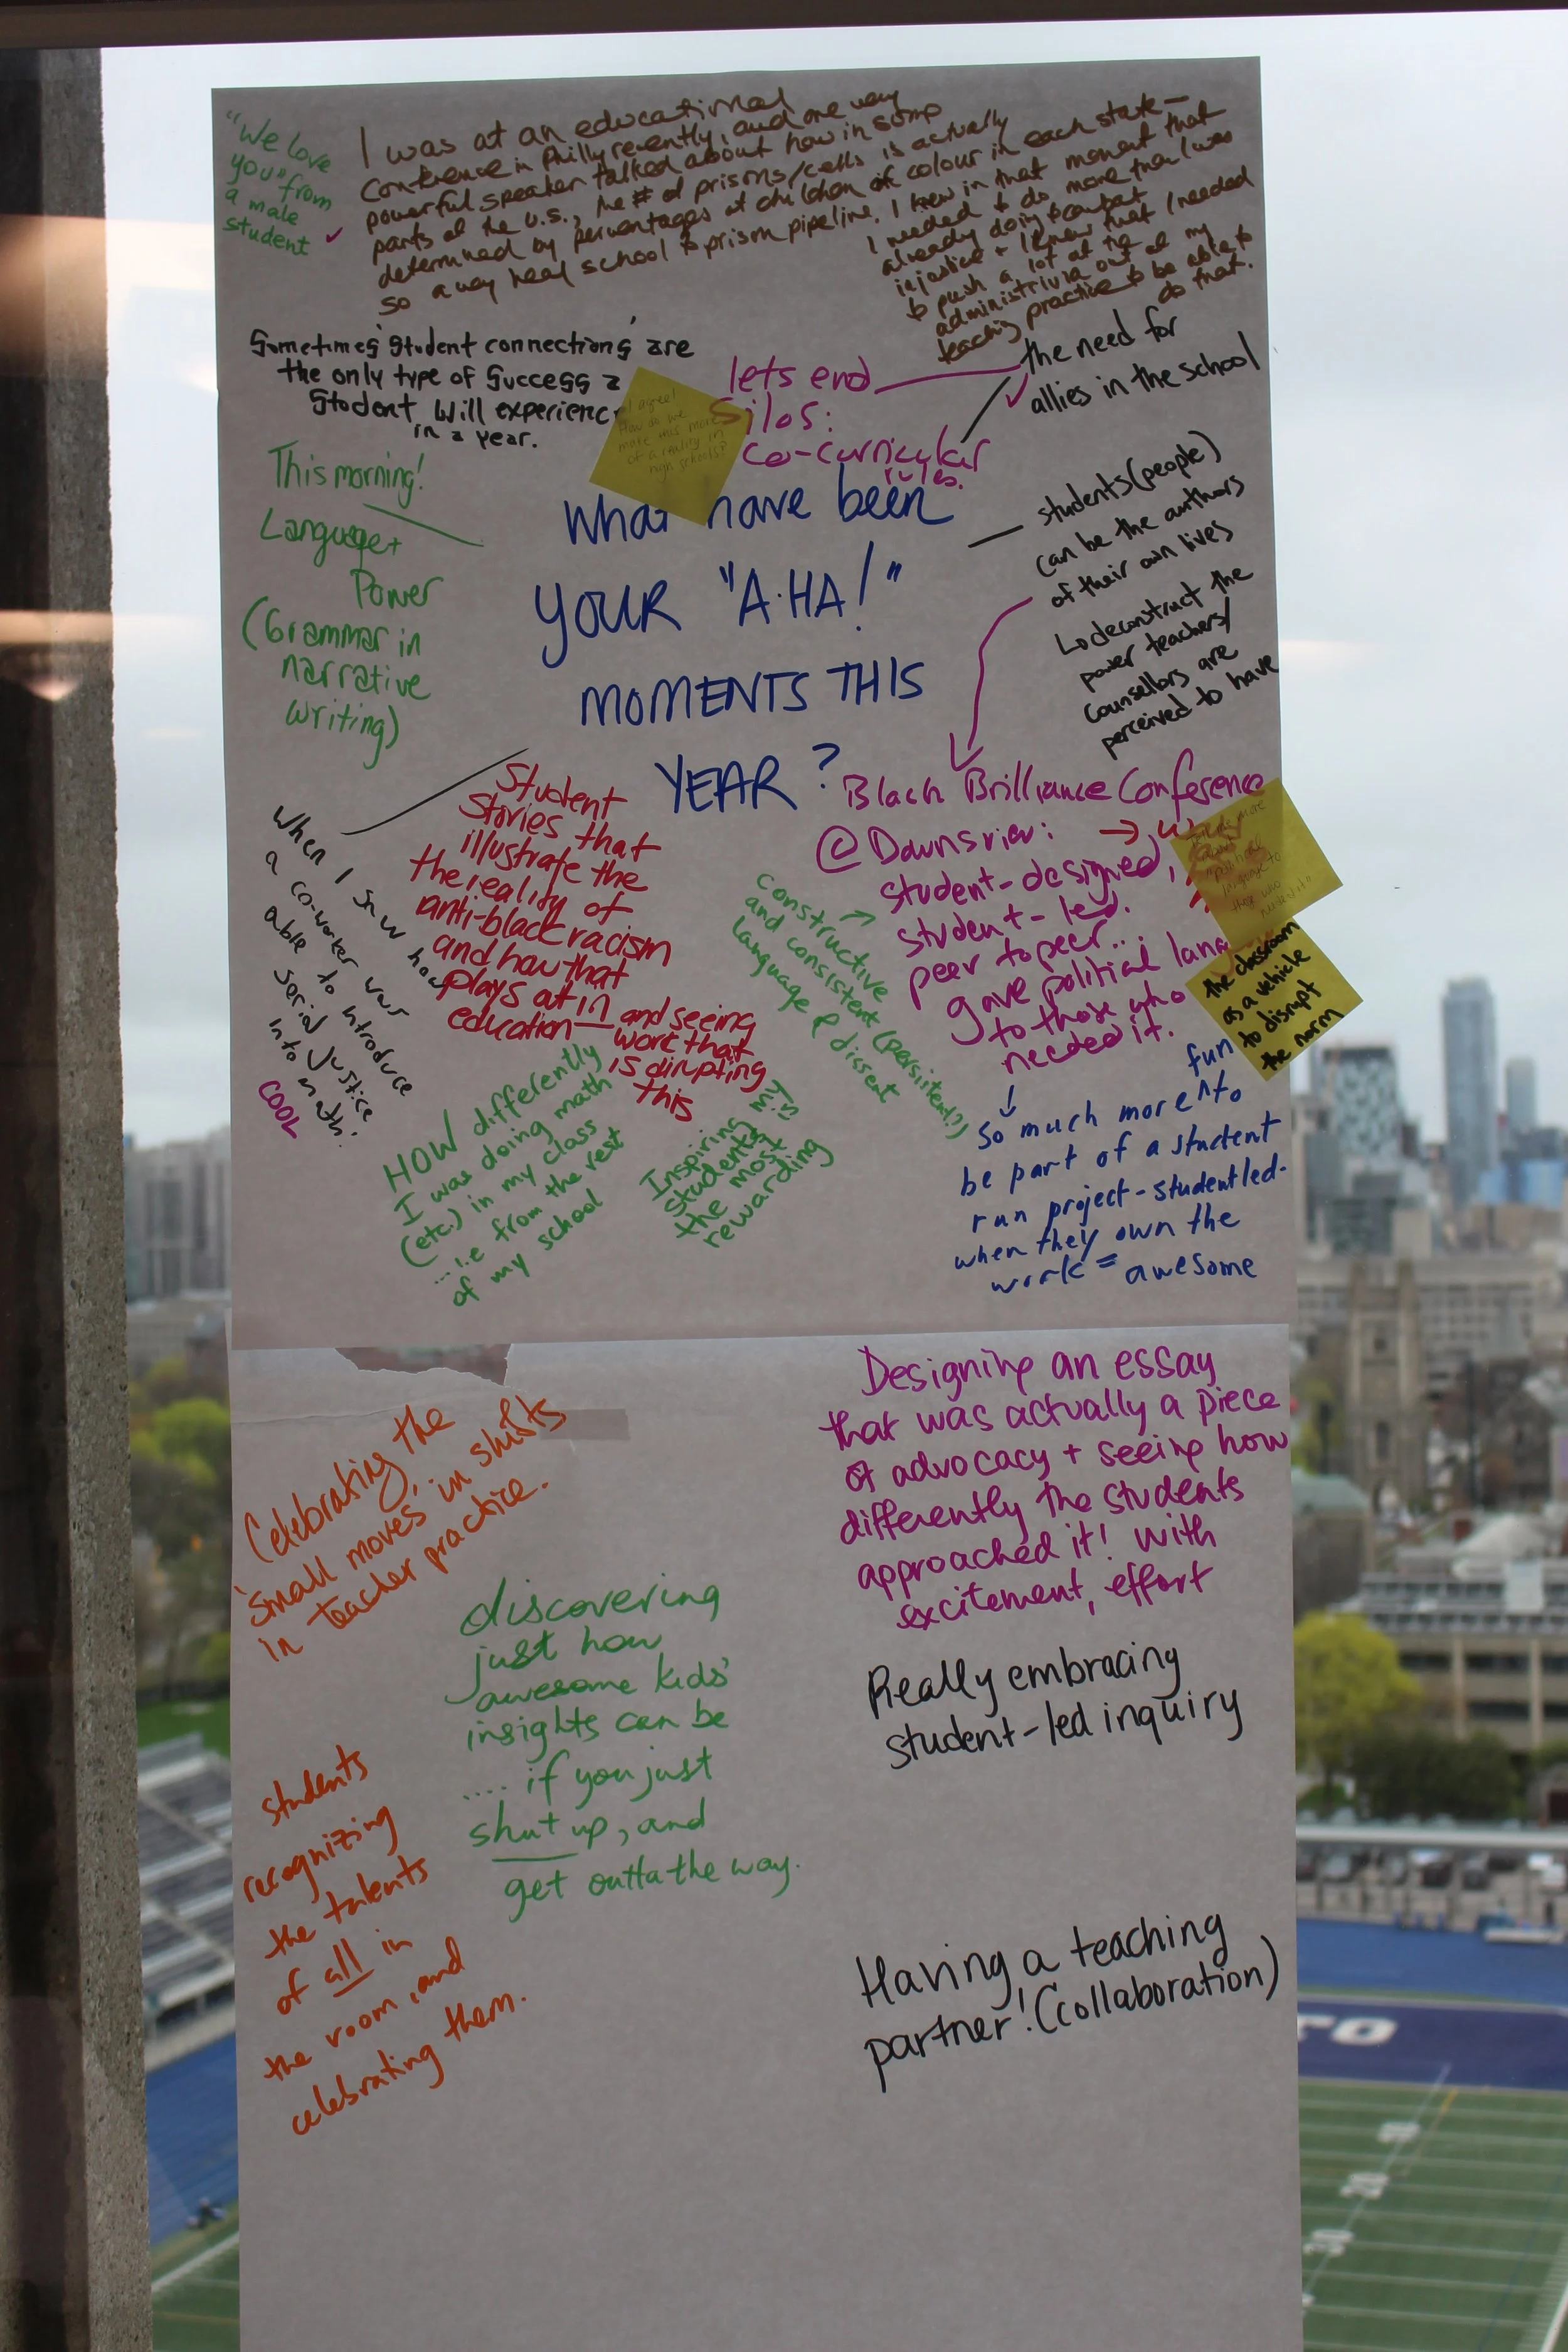 "We love
you" from
a male
student
I was at an educational
conference in Philly recently, and one very
powerful speaker talked about how in some
parts of the U.S., the # of prisons/cells is actually
determined by percentages of children of colour in each state —
so a very real school to prison pipeline. I knew in that moment that
I needed to do more than I was
already doing to combat
injustice + I knew that I needed
to push a lot of the
administrivia out of my
teaching practice to be able to
do that.
Sometimes 'student connections' are
the only type of success a
student will experience
in a year.
I agree!
How do we
make this more
of a reality in
high schools?
lets end
silos:
co-curricular
rules.
the need for
allies in the school
This morning!
Language +
Power
(Grammar in
narrative
writing)
What have been
YOUR "A-HA!"
MOMENTS THIS
YEAR?
students (people)
can be the authors
of their own lives
deconstruct the
power teachers/
counsellors are
perceived to have
When I saw how
a co-worker was
able to introduce
social justice
into math.
COOL
Student
stories that
illustrate the
the reality of
anti-black racism
and how that
plays at in
education — and seeing
work that
is disrupting
this
Black Brilliance Conference
@ Downsview:
student-designed,
student-led.
peer to peer...
gave political lang
to those who
needed it.
constructive
and consistent (persistent?)
language of dissent
the classroom
as a vehicle
to disrupt
the norm
HOW differently
I was doing math
(etc.) in my class
... i.e from the rest
of my school
Inspiring my
students is
the most
rewarding
fun
So much more to
be part of a student
run project - student led -
when they own the
work = awesome
Celebrating the
'small moves' in shifts
in teacher practice.
Designing an essay
that was actually a piece
of advocacy + seeing how
differently the students
approached it! with
excitement, effort
discovering
just how
awesome kids'
insights can be
.... if you just
shut up, and
get outta the way.
Really embracing
student-led inquiry
students
recognizing
the talents
of all in
the room, and
celebrating them.
Having a teaching
partner! (collaboration)
TO